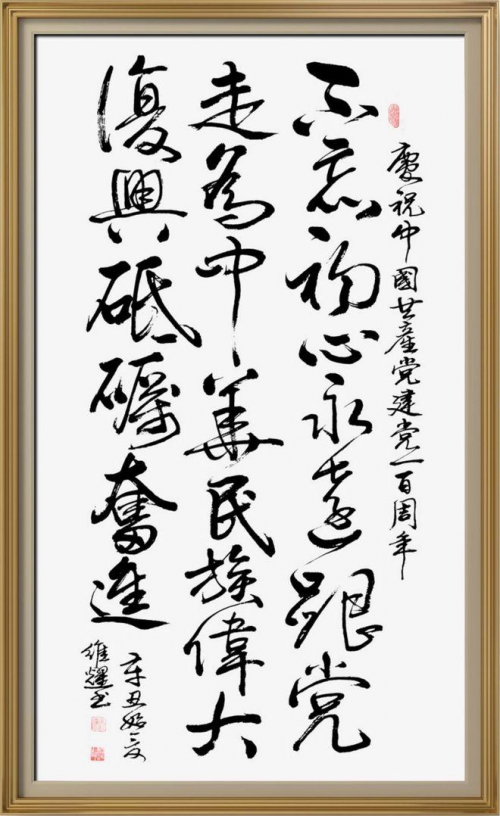 慶祝中國共產党建党一百周年
不忘初心永遠跟党
走為中華民族偉大
復興砥礪奮進
辛丑
維耀书